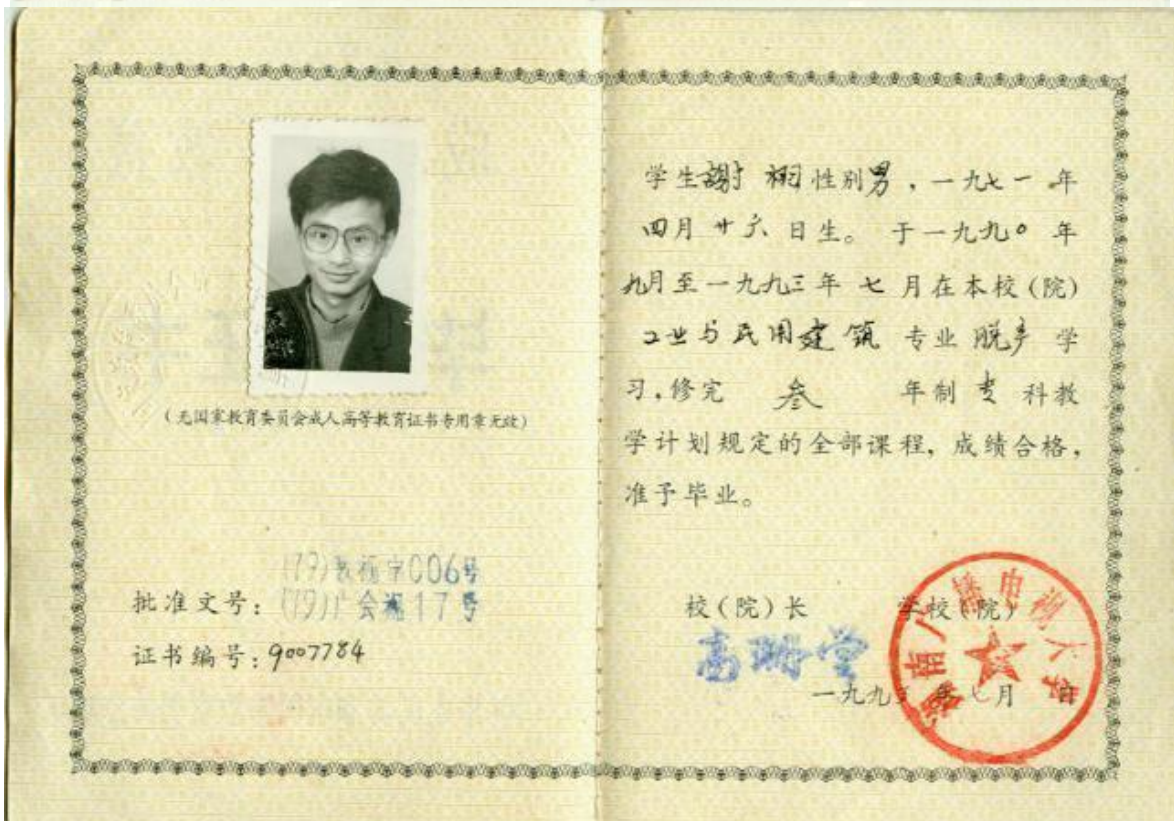 (无国家教育委员会成人高等教育证书专用章无效)
(79)教 字006号
批准文号: (79)广会 17号
证书编号: 9007784
学生謝 栩性别男,一九七一年
四月廿六日生。于一九九0年
九月至一九九三年七月在本校(院)
工业与民用建筑 专业脱产学
习,修完 叁 年制专科教
学计划规定的全部课程,成绩合格,
准予毕业。
校(院)长 学校(院)
高 堂
一九九三年七月 日
广播电视大学